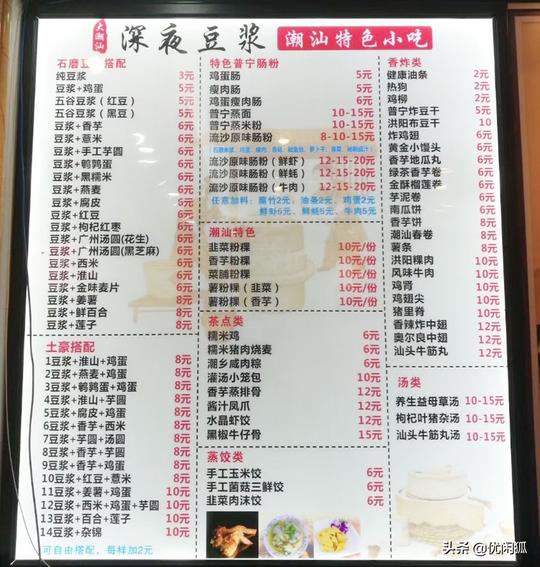 大潮汕
深夜豆浆
潮汕特色小吃
石磨豆 搭配
纯豆浆 3元
豆浆+鸡蛋 5元
五谷豆浆（红豆） 5元
五谷豆浆（黑豆） 5元
豆浆+香芋 6元
豆浆+薏米 6元
豆浆+手工芋圆 6元
豆浆+鹌鹑蛋 6元
豆浆+黑糯米 6元
豆浆+燕麦 6元
豆浆+腐皮 6元
豆浆+红豆 6元
豆浆+枸杞红枣 6元
豆浆+广州汤圆(花生) 6元
豆浆+广州汤圆(黑芝麻) 6元
豆浆+西米 6元
豆浆+淮山 6元
豆浆+金味麦片 6元
豆浆+姜薯 8元
豆浆+鲜百合 8元
豆浆+莲子 8元
土豪搭配
1豆浆+淮山+鸡蛋 8元
2豆浆+燕麦+鸡蛋 8元
3豆浆+鹌鹑蛋+鸡蛋 8元
4豆浆+淮山+芋圆 8元
5豆浆+腐皮+鸡蛋 8元
6豆浆+香芋+西米 8元
7豆浆+芋圆+汤圆 8元
8豆浆+香芋+芋圆 8元
9豆浆+香芋+鸡蛋 8元
10豆浆+红豆+薏米 8元
11豆浆+姜薯+鸡蛋 10元
12豆浆+西米+鸡蛋+芋圆 10元
13豆浆+百合+莲子 10元
14豆浆+杂锦 10元
可自由搭配，每样加2元
特色普宁肠粉
鸡蛋肠 5元
瘦肉肠 5元
鸡蛋瘦肉肠 6元
普宁蒸面 10-15元
普宁蒸米粉 10-15元
流沙原味肠粉 8-10-15元
流沙原味肠粉（鲜虾） 12-15-20元
流沙原味肠粉（鲜蚝） 12-15-20元
流沙原味肠粉（牛肉） 12-15-20元
任意加料：腐竹2元、油条2元、鸡蛋2元
鲜虾6元、鲜蚝5元、牛肉5元
潮汕特色
韭菜粉粿 10元/份
香芋粉粿 10元/份
菜脯粉粿 10元/份
薯粉粿（韭菜） 10元/份
薯粉粿（香芋） 10元/份
茶点类
糯米鸡 6元
糯米猪肉烧麦 6元
潮乡咸肉粽 6元
灌汤小笼包 10元
香芋蒸排骨 12元
酱汁凤爪 12元
水晶虾饺 12元
黑椒牛仔骨 15元
蒸饺类
手工玉米饺 6元
手工菌菇三鲜饺 6元
韭菜肉沫饺 6元
香炸类
健康油条 2元
热狗 2元
鸡柳 2元
普宁炸豆干 5元
洪阳布豆干 10
炸鸡翅 6元
黄金小馒头 6元
香芋地瓜丸 6元
绿茶香芋卷 6元
金酥榴莲卷 6元
芋泥卷 6元
南瓜饼 6元
香芋饼 8元
潮汕春卷 8元
薯条 8元
洪阳粿肉 10元
风味牛肉 10元
鸡肾 10元
鸡翅尖 10元
猪里脊 10元
香辣炸中翅 12元
奥尔良中翅 12元
汕头牛筋丸 12元
汤类
养生益母草汤 10-15元
枸杞叶猪杂汤 10-15元
汕头牛筋丸汤 10-15元
头条 @优闲狐